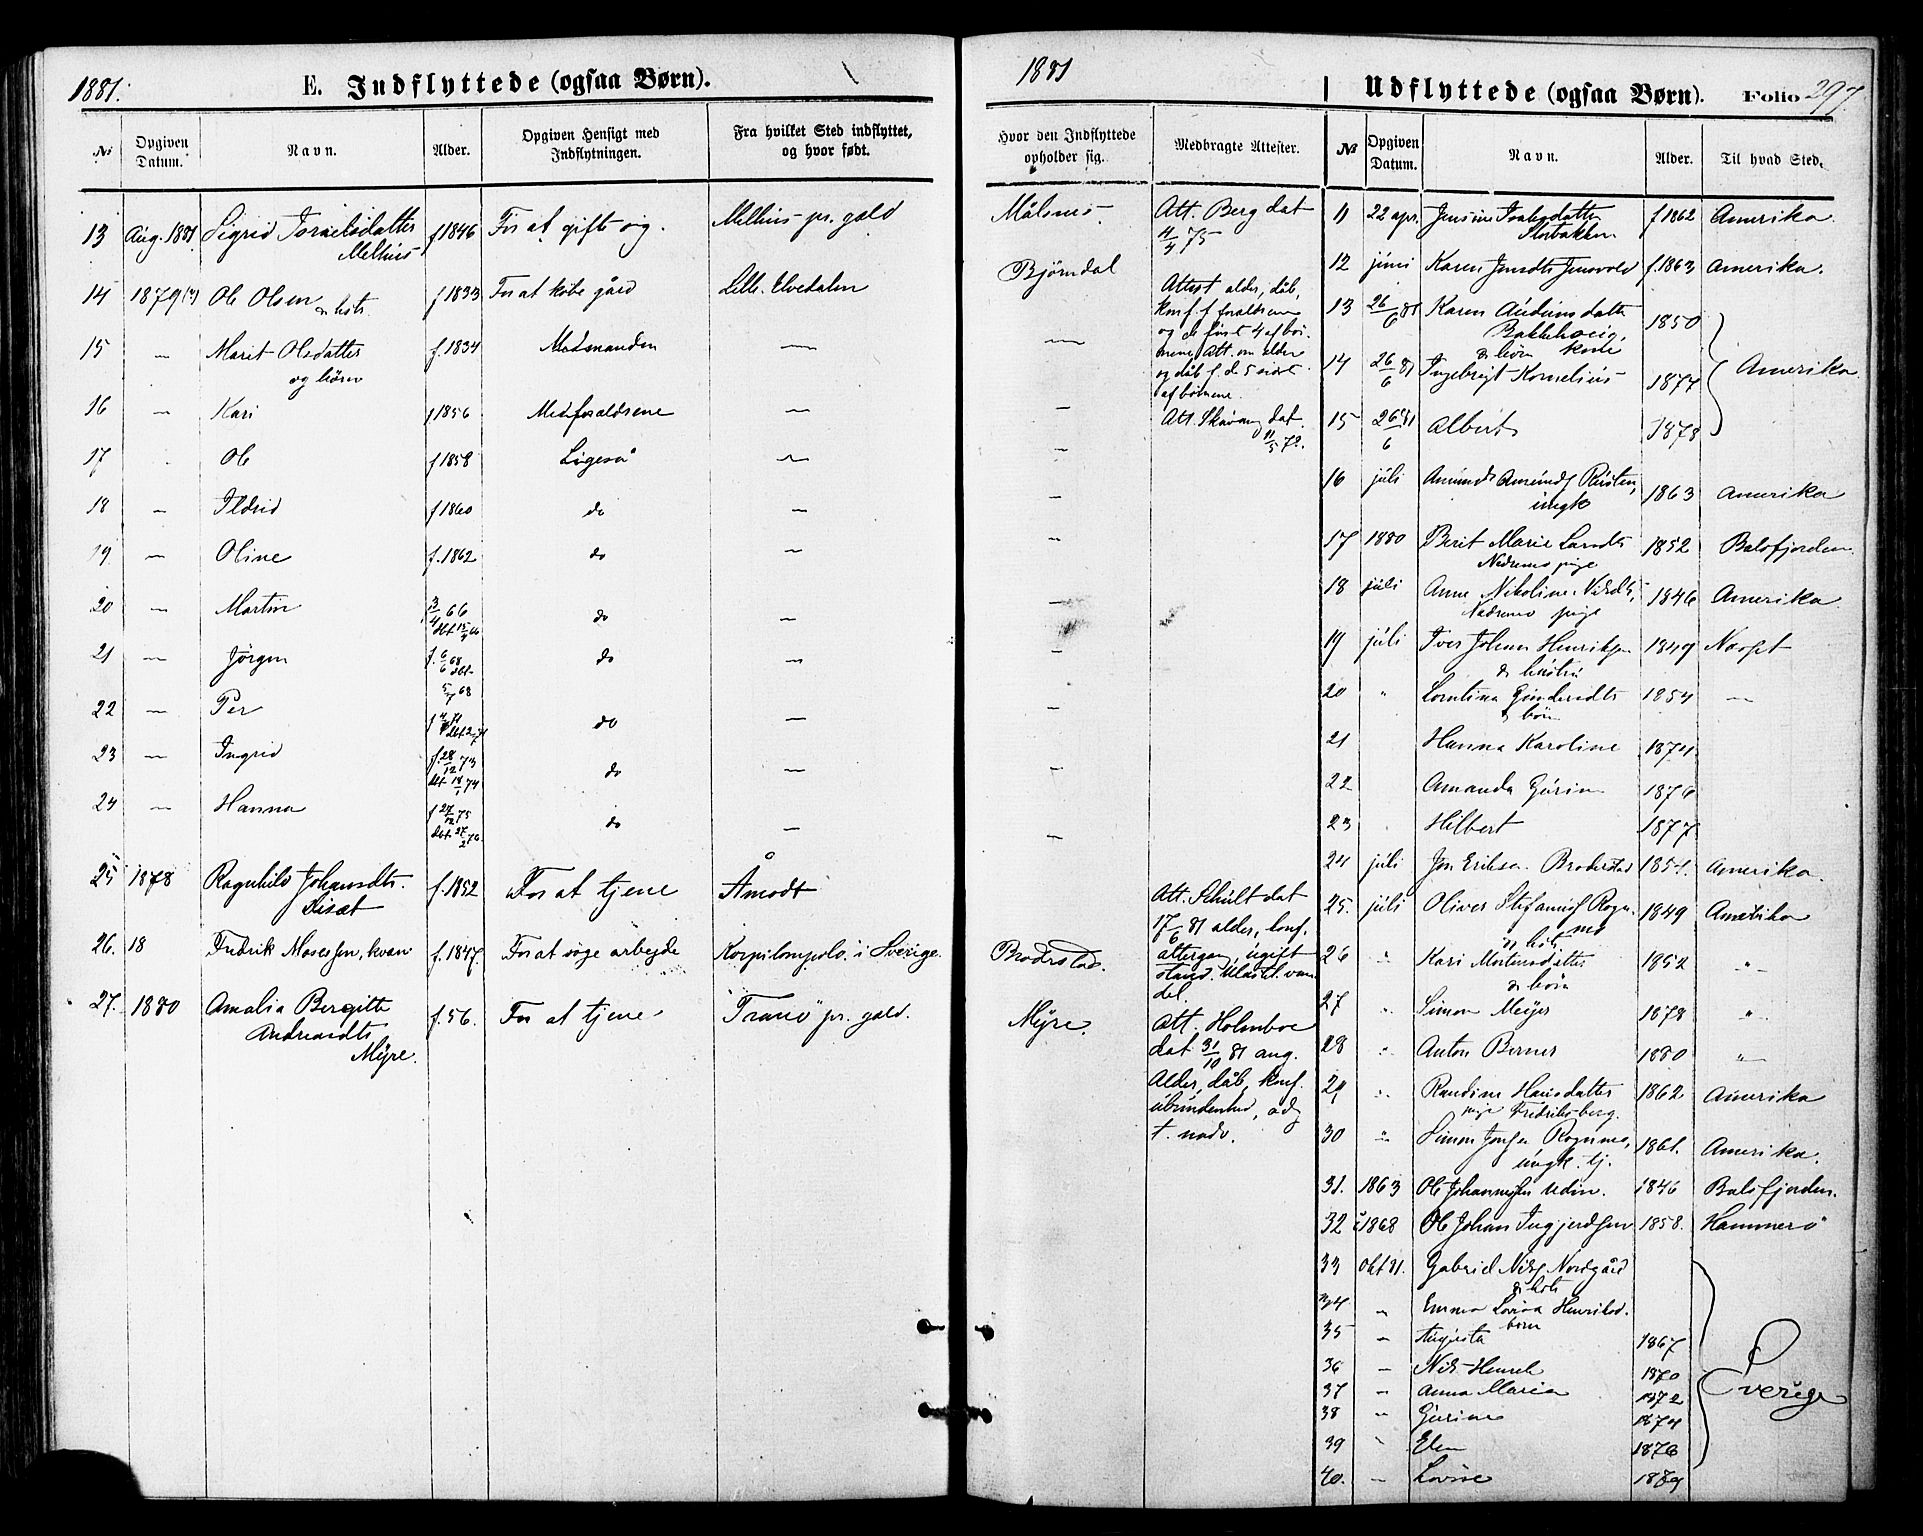 1881.
E. Indflyttede (ogsaa Børn).
№ Opgiven Datum. Navn. Alder. Opgiven Hensigt med Indflytningen. Fra hvilket Sted indflyttet, og hvor født.
13 Aug. 1881 Sigrid Israelsdatter f 1846 For at gifte sig. Melhus pr. gæld
Melhus
14 1879(?) Ole Olsen f 1833 For at købe gård Lille Elvedalen
& hstr.
15 — Marit Olsdatter f. 1834 Med manden —
og børn
16 — Kari f 1856 Med forældrene —
17 Ole f 1858 Ligeså —
18 — Ildrid f 1860 do —
19 — Oline f. 1862 do —
20 — Martin 3/4 66 do —
dbt 15/4 66
21 — Jørgen f. 6/6 68 do —
dbt 5/7 68
22 — Per do —
23 — Ingrid f. 28/12 73 do —
dbt 18/1 74
24 — Hanna f 27/12 75 do —
dbt 27/2 76
25 1878 Ragnhild Johansdtr. f. 1852 For at tjene Åmodt
26. 18 Fredrik Mosessen, kvæn f. 1847 For at søge arbejde Korpilompolo i Sverige.
27. 1880 Amalia Bergitte f. 56. For at tjene Tranø pr. gæld.
Andreasdtr
Myre.
1881
Hvor den Indflyttede opholder sig. Medbragte Attester.
Målsnes. Att. Berg dat
4/4 75
Bjørndal Attest alder, dåb,
konf. f forældrene
og de først 4 af bør
nene, Att. om alder
og dåb f. de 5 sidst
af børnene.
Att. Skavang dat.
Att. Schult dat
17/6 81 alder, konf.
Brodrstad. altergang, ugift
stand. Ulastl. van
del.
Myre. Att. Holmboe
dat 31/10 81 ang.
Alder, dåb, konf.
ubundenhed, adg
t. nadv.
Udflyttede (ogsaa Børn). Folio 297
№ Opgiven Datum. Navn. Alder. Til hvad Sted.
11 22 apr. Jensine f 1862 Amerika.
Storbakken
12 juni Karen f. 1863 Amerika.
13 26/6 81 Karen Audunsdatter 1850
Bakkehaug,
& børn kone
14 26/6 81 Ingebrigt Kornelius 1877 Amerika.
15 26/6 81 Albert 1878
16 juli Amund Amunds. Rusten, 1863 Amerika
ungk
17 1880 Berit Marie Larsdtr 1852 Balsfjorden.
Nedremo pige
18 juli Anne Nikoline Nilsdtr, 1846 Amerika
Nedremo pige
19 juli Iver Johan Henriksen 1849
& hustru
20 " Lorntina Gundersdtr 1854 —
& børn
21 Hanna Karoline 1874
22 Amanda Gurine 1876
23 Hilbert 1877
24 juli Jon Eriksen Broderstad 1854. Amerika.
25. juli Oliver Stefanus. Rogn 1849 Amerika
& hstr. mo
26 " Kari Mortensdatter 1852 "
& børn
27 " Simon Meyer 1878 "
28 " Anton Berner 1880 "
29 " Randine Hansdatter 1862 Amerika
pige Fredriksberg.
30 " Simon Rognmo, 1861. Amerika.
ungk. tj.
31. 1863 Ole Johannessen Uden. 1846 Balsfjorden.
32 1868 Ole Johan Ingjerdsen 1858. Hammerø
33 Okt 81. Gabriel Nils. Nordgård
& hstr
34 " Emma Lovisa Henriksd.
børn
35 " Augusta 1867
36 — Nils Henrik 1870
37 — Anna Maria 1872 Sverige
38 " Gurine 1874
39 " Elen 1876
40. — Lovise 1879